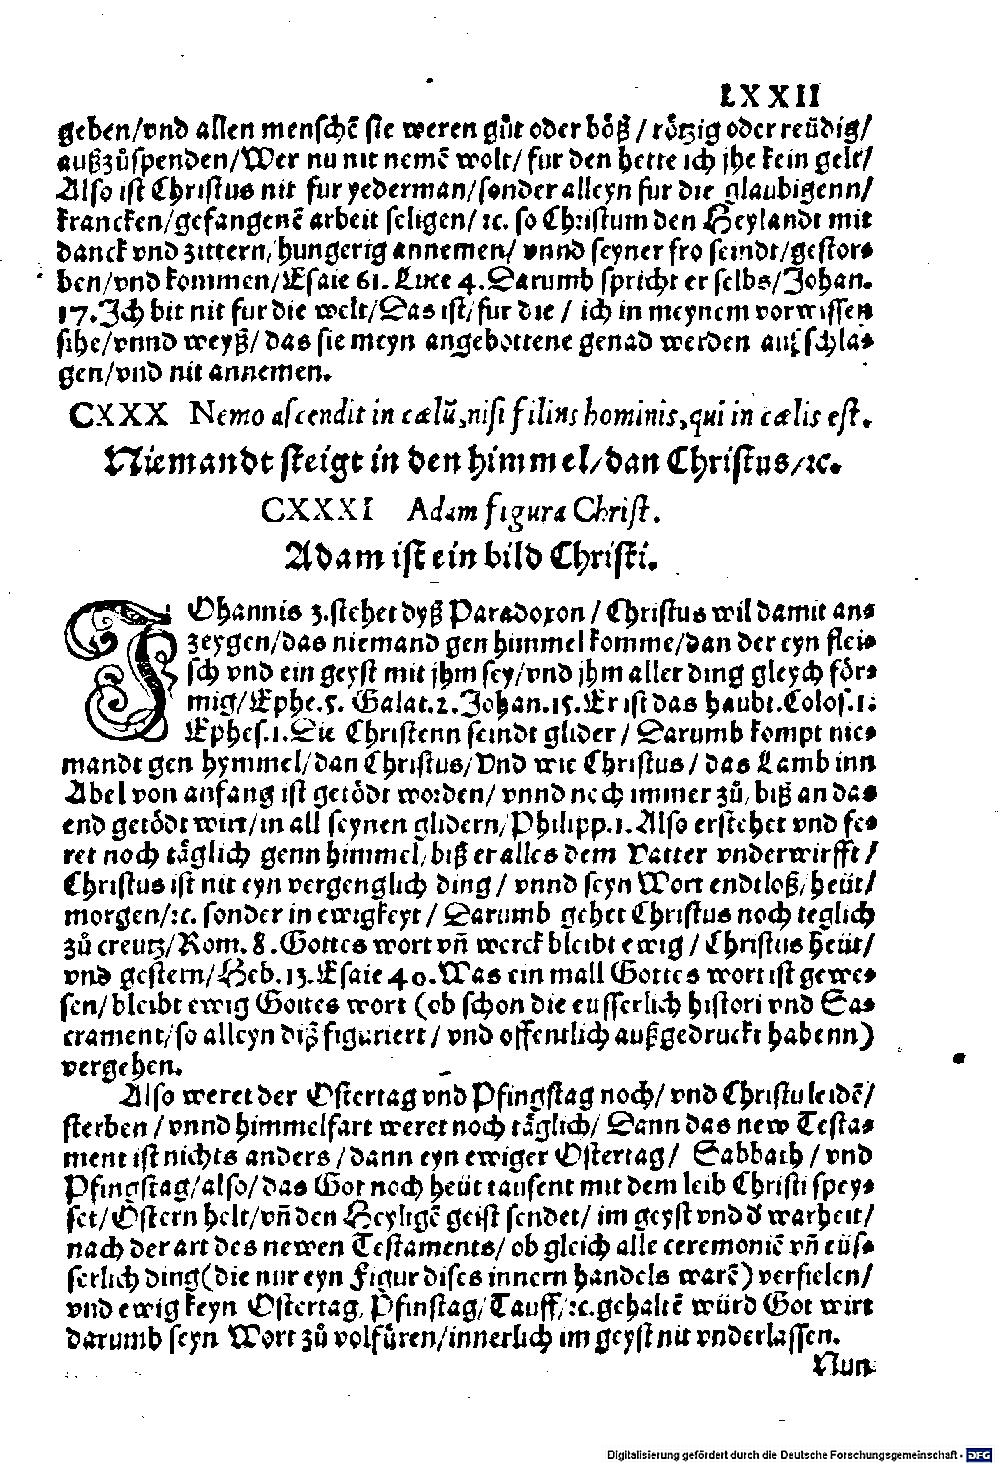 LXXII
geben/vnd allen menschē sie weren gůt oder bôß / rôtzig oder reüdig/
außzůspenden/Wer nu nit nemē wolt/ fur den hette ich jhe kein gelt/
Also ist Christus nit fur yederman/sonder alleyn fur die glaubigenn/
krancken/gefangenē arbeit seligen/ ⁊c. so Christum den Heylandt mit
danck vnd zittern/hungerig annemen/ vnnd seyner fro seindt/gestor⸗
ben/vnd kommen/Esaie 61. Luce 4. Darumb spricht er selbs/Johan.
17. Ich bit nit fur die welt/Das ist/fur die / ich in meynem vorwissen
sihe/vnnd weyß/ das sie meyn angebottene genad werden außschla⸗
gen/vnd nit annemen.
CXXX Nemo ascendit in cælũ,nisi filius hominis,qui in cælis est.
Niemandt steigt in den himmel/dan Christus/⁊c.
CXXXI Adam figura Christ.
Adam ist ein bild Christi.
IOhannis 3. stehet dyß Paradoxon / Christus wil damit an⸗
zeygen/das niemand gen himmel komme/dan der eyn flei⸗
sch vnd ein geyst mit jhm sey/vnd jhm aller ding gleych fôr⸗
mig/Ephe.5. Galat.2. Johan.15. Er ist das haubt. Colos.1.
Ephes.1. Die Christenn seindt glider / Darumb kompt nie⸗
mandt gen hymmel/dan Christus/Vnd wie Christus / das Lamb inn
Abel von anfang ist getôdt worden/ vnnd noch immer zů/ biß an das
end getôdt wirt/in all seynen glidern/Philipp.1. Also erstehet vnd fe⸗
ret noch tåglich genn himmel/biß er alles dem Vatter vnderwirfft/
Christus ist nit eyn vergenglich ding / vnnd seyn Wort endtloß/heüt/
morgen/⁊c. sonder in ewigkeyt / Darumb gehet Christus noch teglich
zů creutz/Rom. 8. Gottes wort vñ werck bleibt ewig / Christus heüt/
vnd gestern/Heb. 13. Esaie 40. Was ein mall Gottes wort ist gewe⸗
sen/bleibt ewig Gottes wort (ob schon die eusserlich histori vnd Sa⸗
crament/so alleyn diß figuriert / vnd offentlich außgedruckt habenn)
vergehen.
Also weret der Ostertag vnd Pfingstag noch/ vnd Christu leidē/
sterben / vnnd himmelfart weret noch tåglich/ Dann das new Testa⸗
ment ist nichts anders / dann eyn ewiger Ostertag/ Sabbath / vnd
Pfingstag/also/das Got noch heüt tausent mit dem leib Christi spey⸗
set/Ostern helt/vñ den Heyligē geist sendet/ im geyst vnd ð warheit/
nach der art des newen Testaments/ ob gleich alle ceremoniē vñ eüs⸗
serlich ding(die nur eyn Figur dises innern handels warē) verfielen/
vnd ewig keyn Ostertag, Pfinstag/Tauff/⁊c. gehaltē würd Got wirt
darumb seyn Wort zů volfůren/innerlich im geyst nit vnderlassen.
Nun
Digitalisierung gefördert durch die Deutsche Forschungsgemeinschaft - DFG